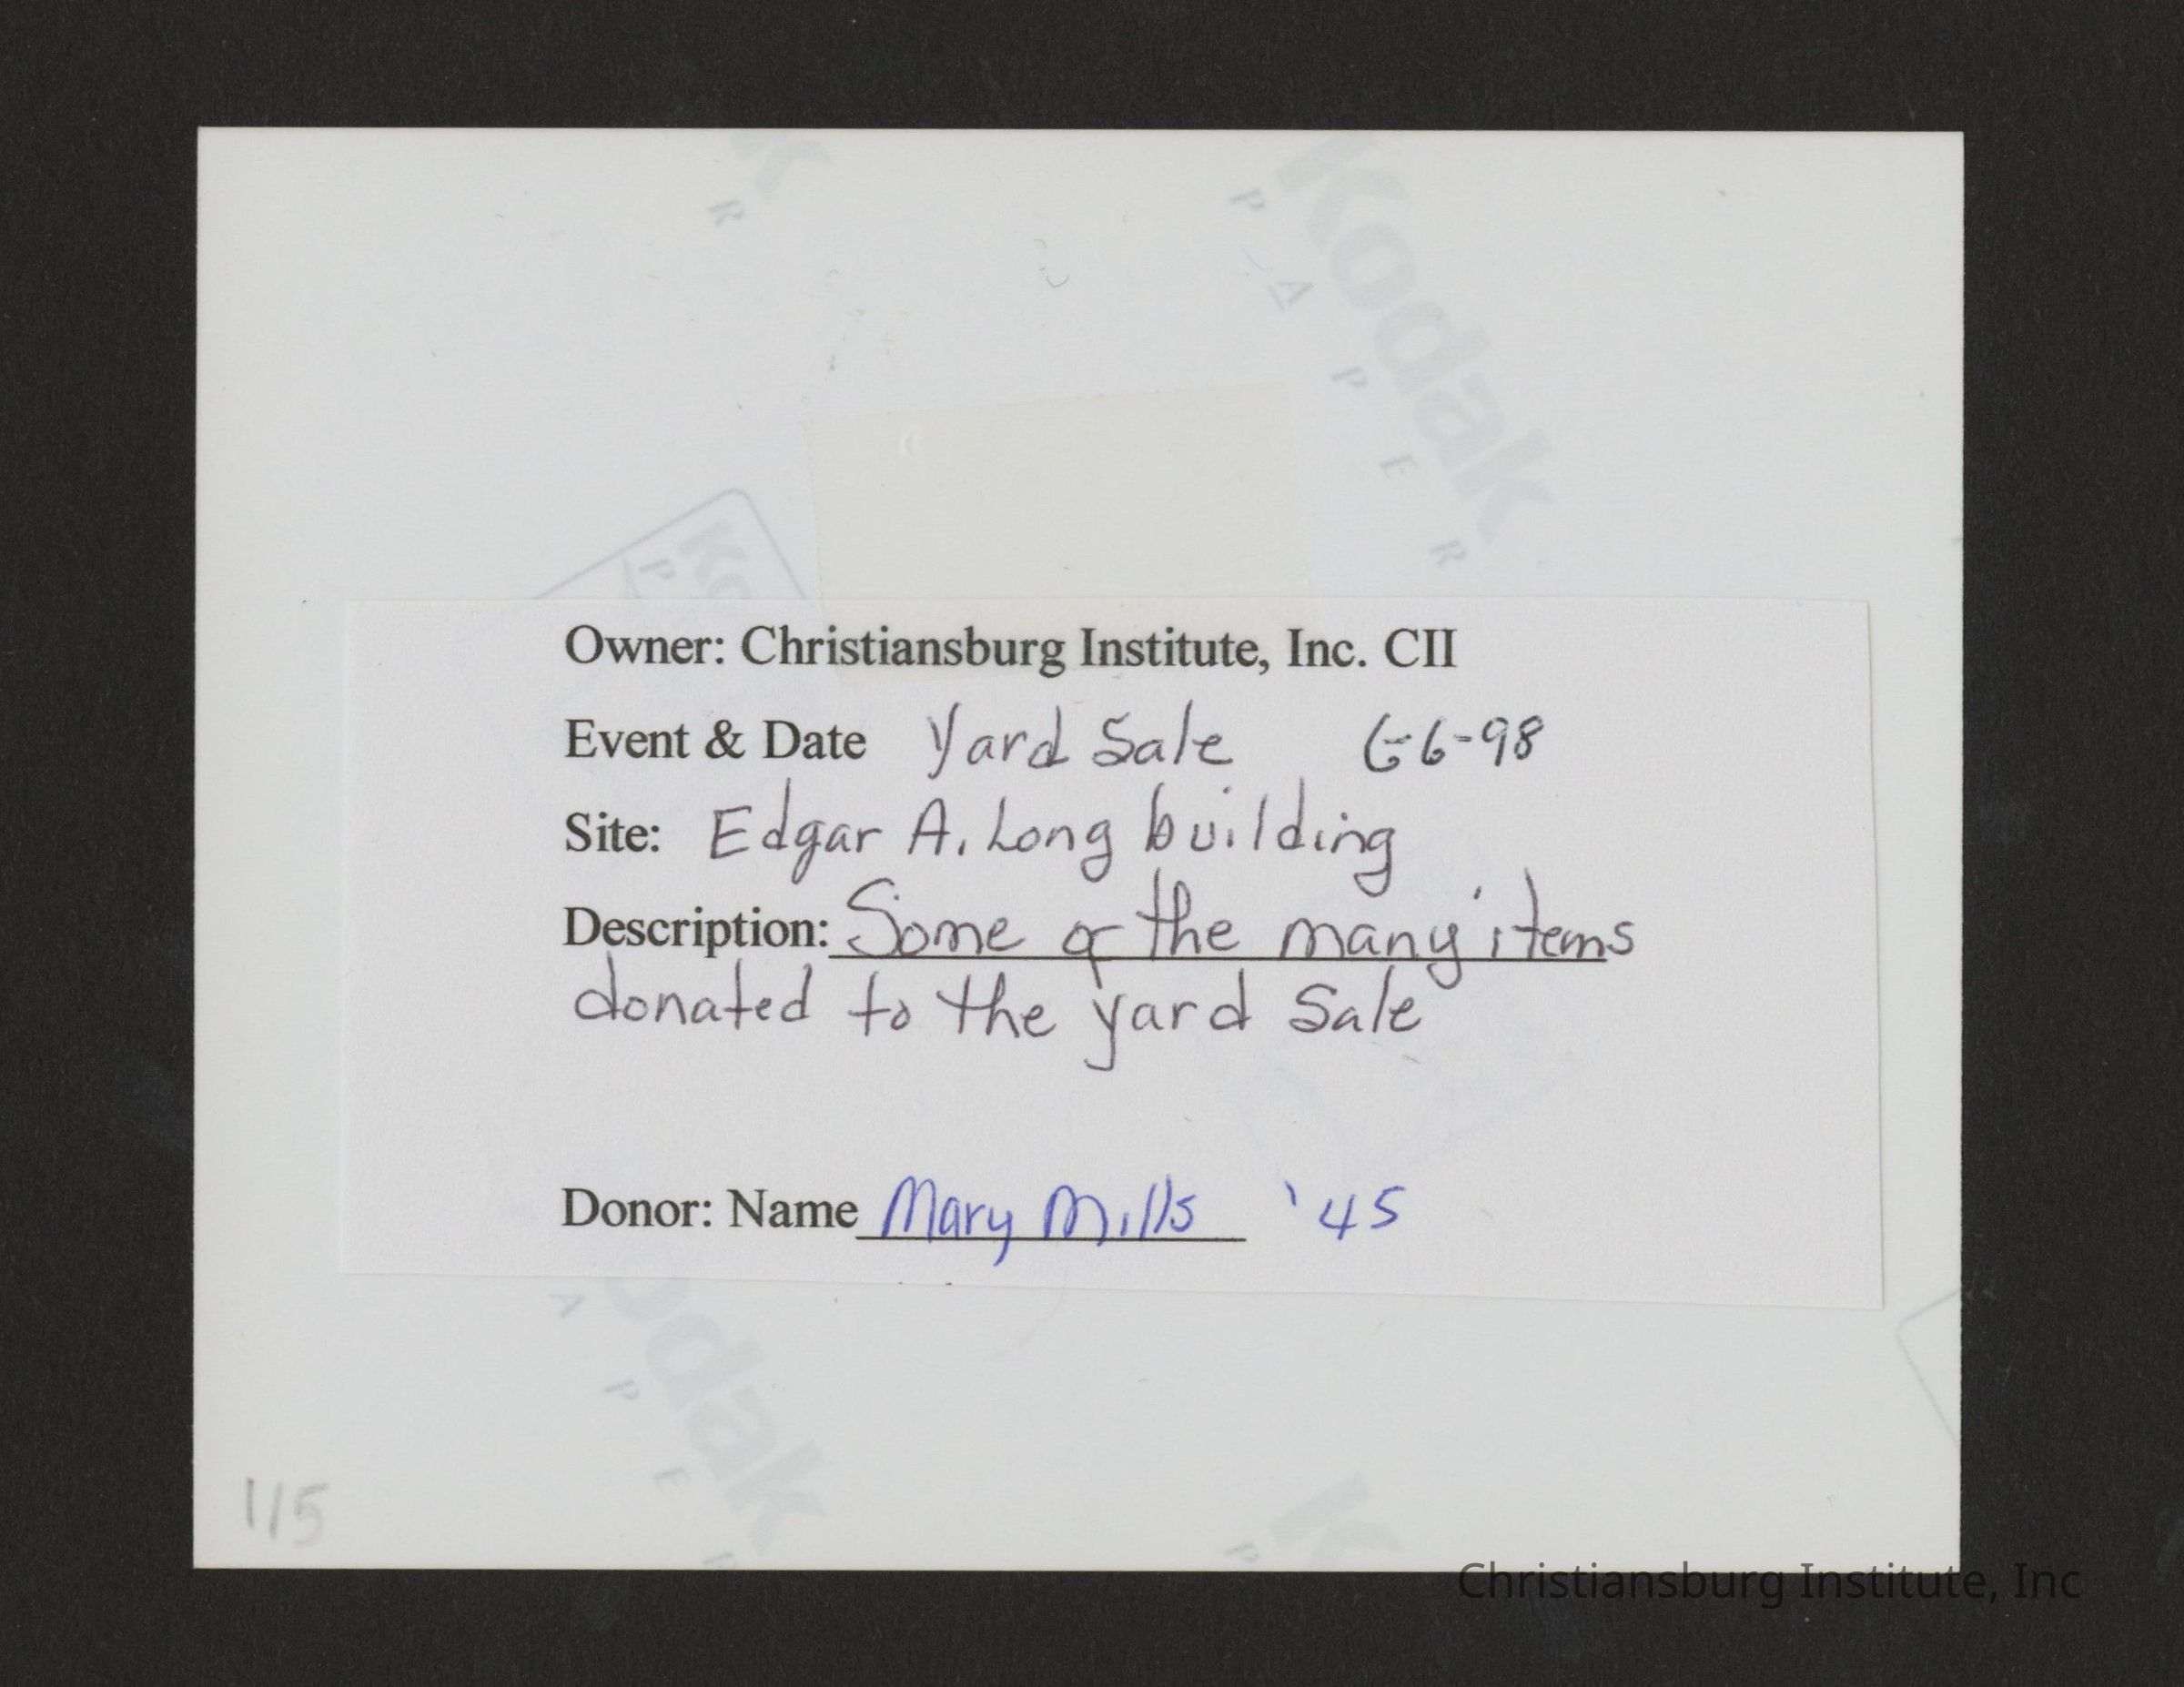 Kodak
PAPER
Owner: Christiansburg Institute, Inc. CII
Event & Date Yard Sale 6-6-98
Site: Edgar A. Long building
Description: Some of the many items
donated to the yard Sale
Donor: Name Mary Mills '45
115
Christiansburg Institute, Inc